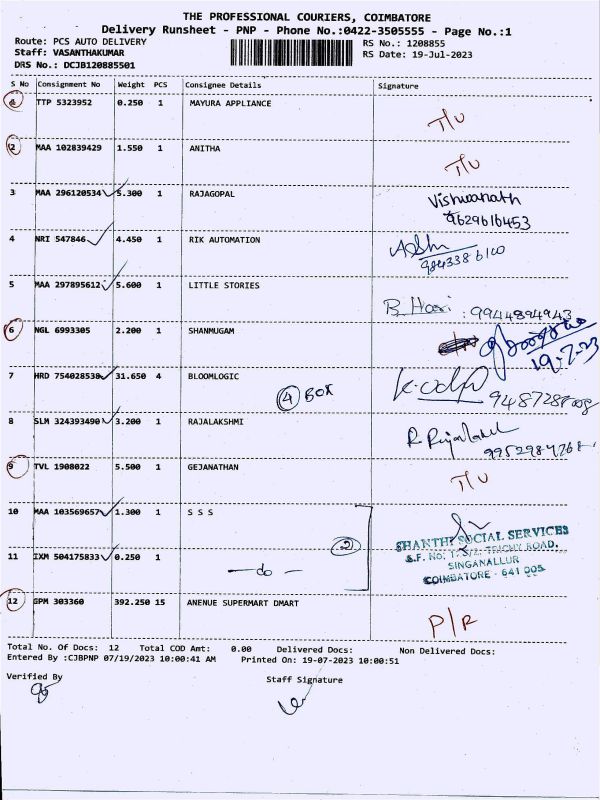 THE PROFESSIONAL COURIERS, COIMBATORE
Delivery Runsheet - PNP - Phone No.:0422-3505555 - Page No.:1
Route: PCS AUTO DELIVERY RS No.: 1208855
Staff: VASANTHAKUMAR RS Date: 19-Jul-2023
DRS No.: DCJB120885501
S No Consignment No Weight PCS Consignee Details Signature
1 TTP 5323952 0.250 1 MAYURA APPLIANCE T/U
2 MAA 102839429 1.550 1 ANITHA T/U
3 MAA 296120534 5.300 1 RAJAGOPAL Vishwanath
9629616453
4 NRI 547846 4.450 1 RIK AUTOMATION
5 MAA 297895612 5.600 1 LITTLE STORIES B. Hari : 9944894943
6 NGL 6993305 2.200 1 SHANMUGAM
19-7-23
7 HRD 754028538 31.650 4 BLOOMLOGIC
4 BOX
8 SLM 324393490 3.200 1 RAJALAKSHMI
9 TVL 1908022 5.500 1 GEJANATHAN T/U
10 MAA 103569657 1.300 1 S S S
2
SHANTHI SOCIAL SERVICES
TRICHY ROAD,
SINGANALLUR
COIMBATORE - 641 005
11 IXM 504175833 0.250 1
— do —
12 GPM 303360 392.250 15 ANENUE SUPERMART DMART P/R
Total No. Of Docs: 12 Total COD Amt: 0.00 Delivered Docs: Non Delivered Docs:
Entered By :CJBPNP 07/19/2023 10:00:41 AM Printed On: 19-07-2023 10:00:51
Verified By Staff Signature